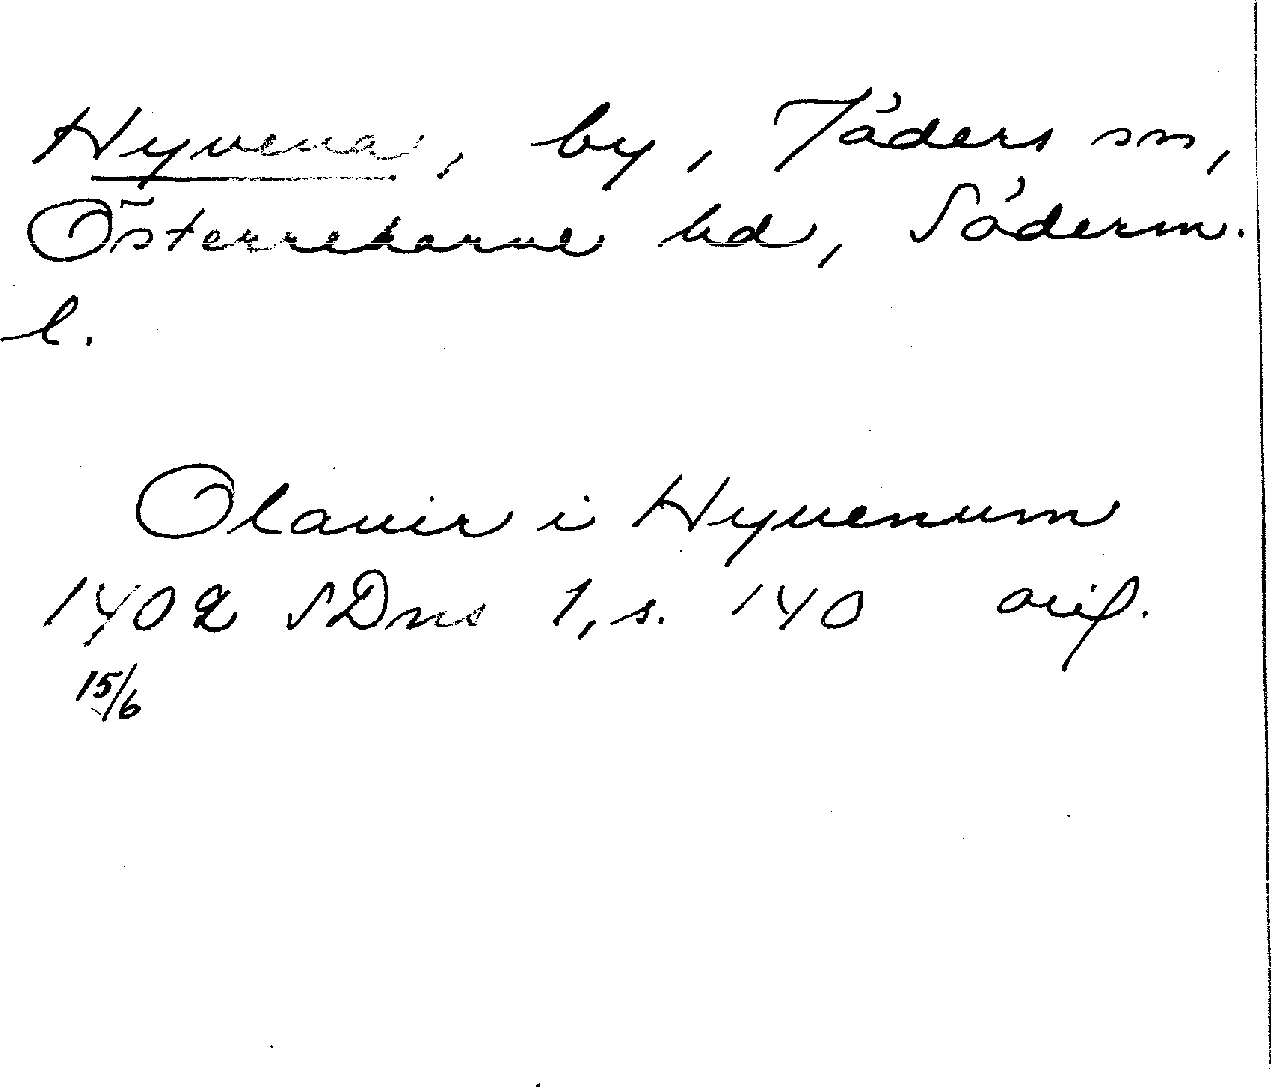 Hyvena, by, Jäders sn,
Österrekarne hd, Söderm.
l.
Olauir i Hyuenum
1402 SDns 1, s. 140 orig.
15/6